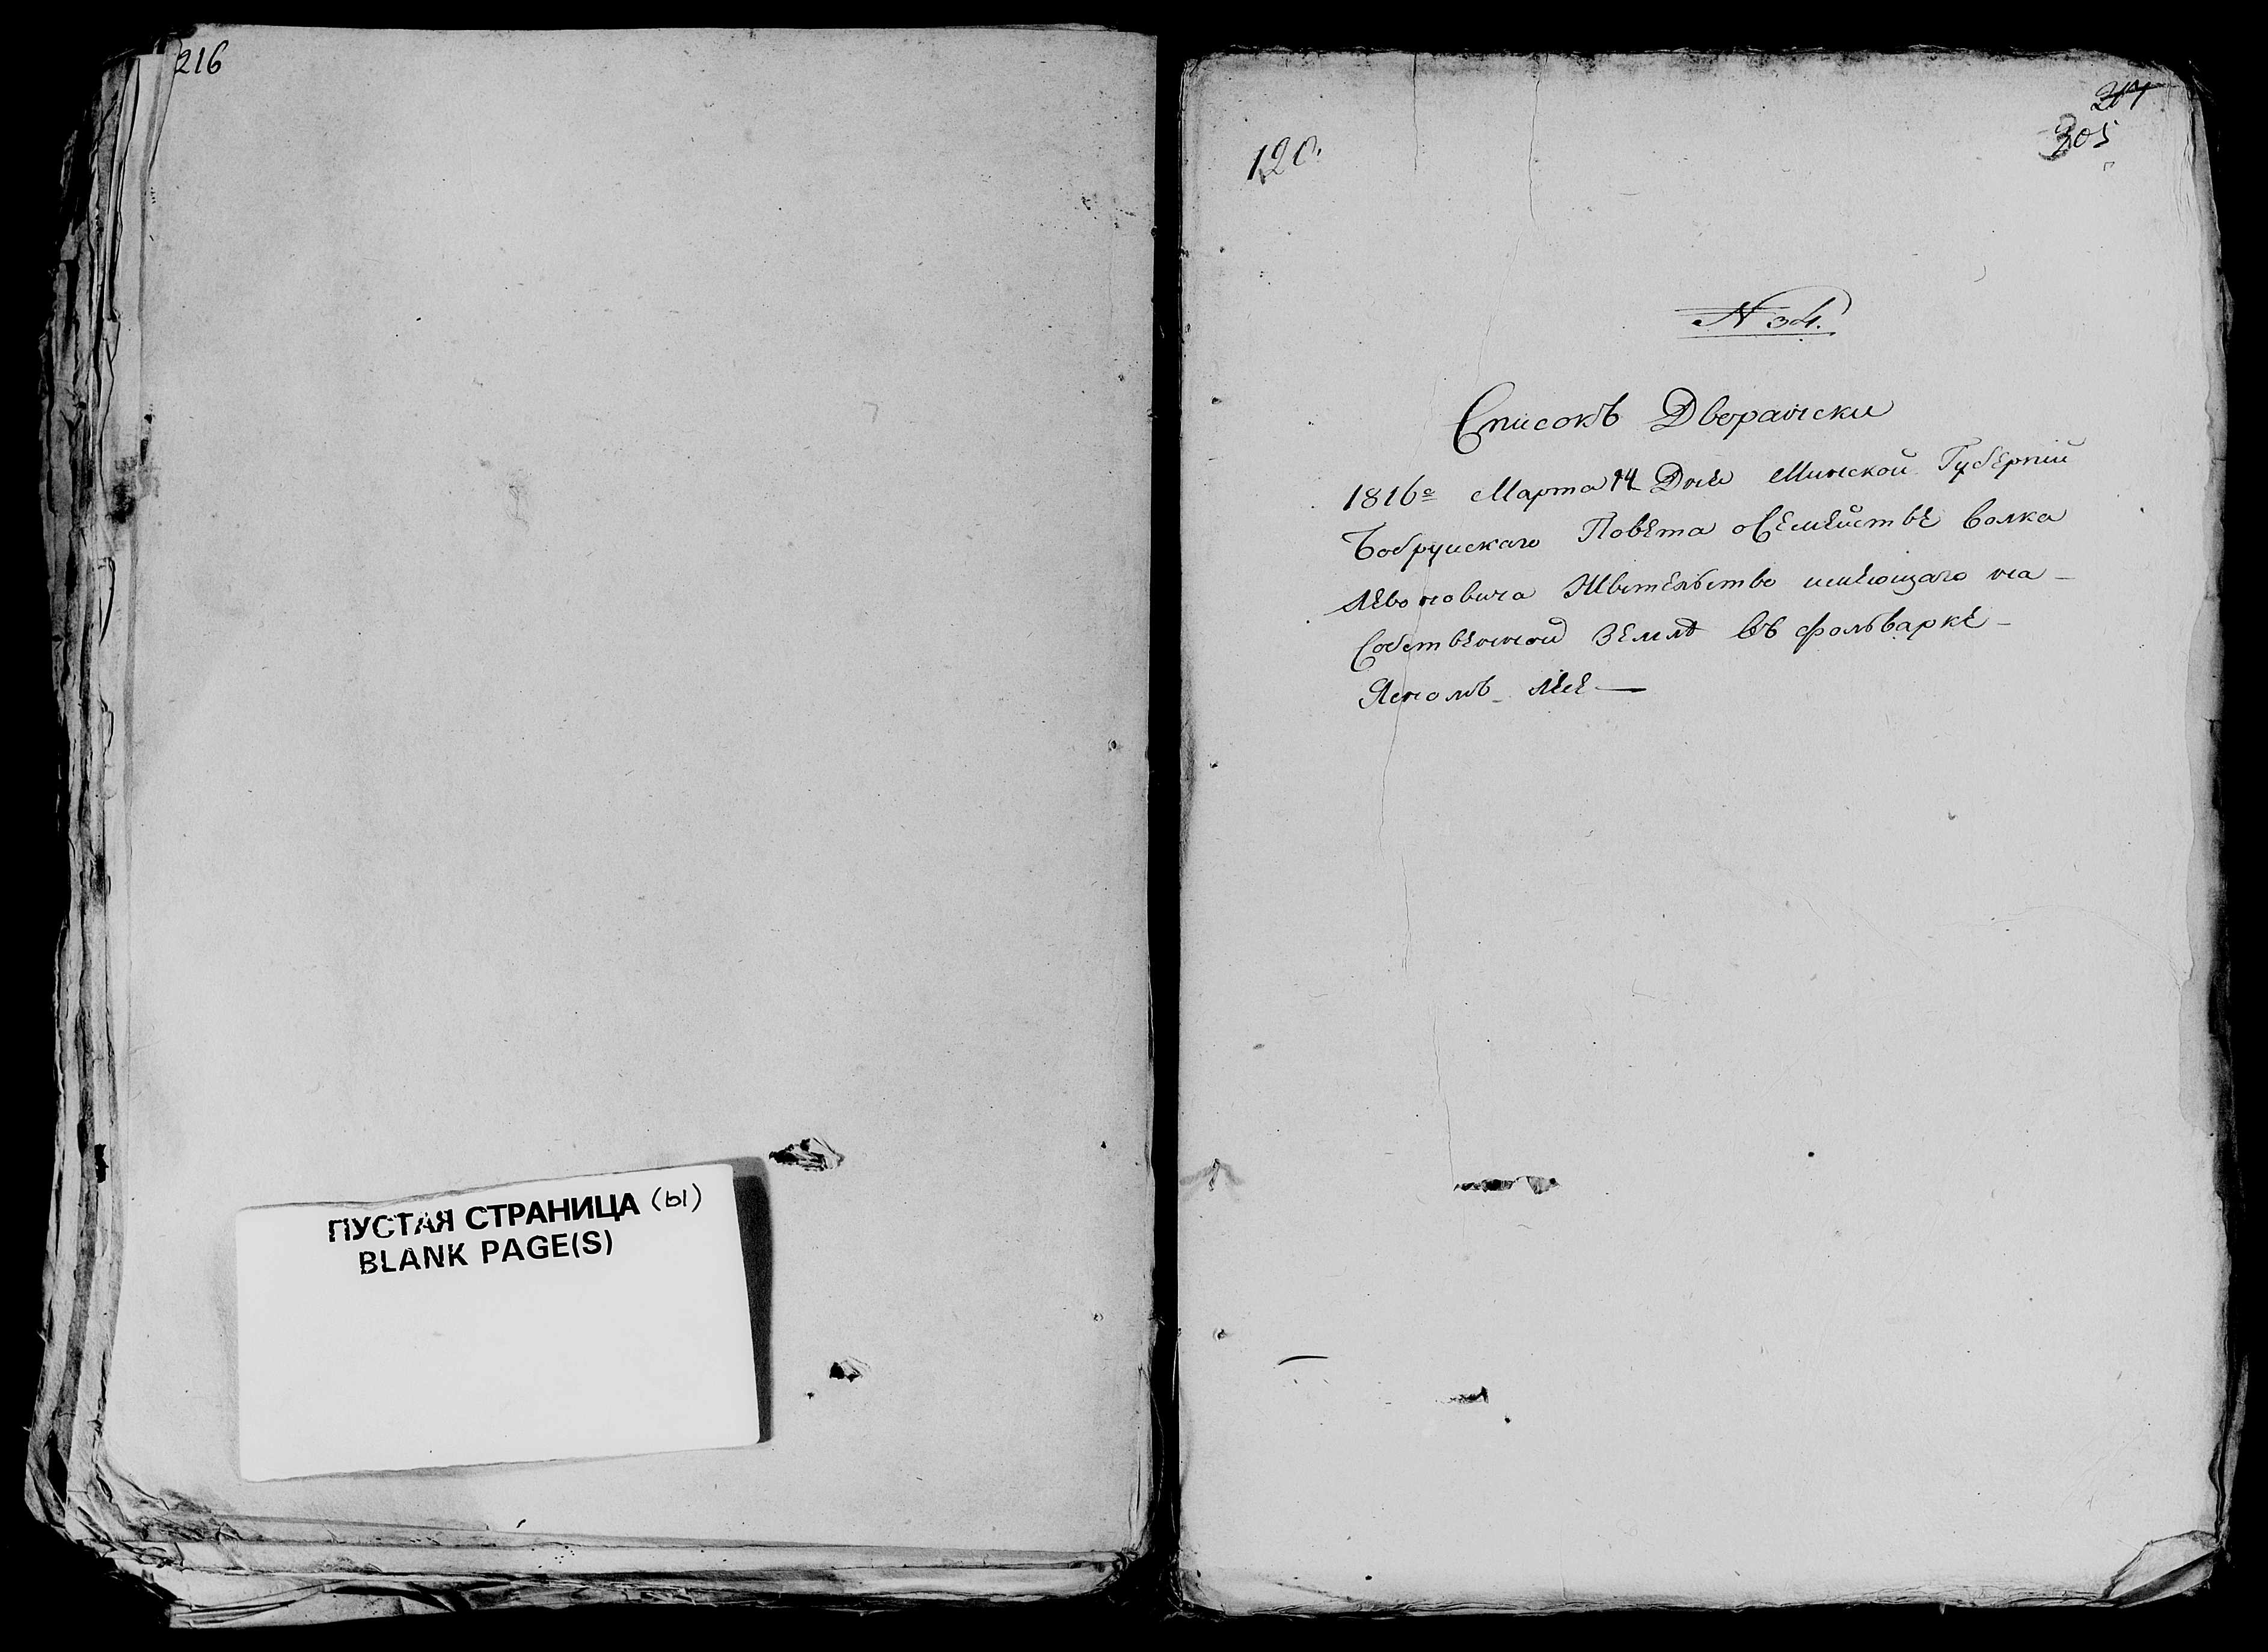 216
ПУСТАЯ СТРАНИЦА (ы)
BLANK PAGE(S)
217
305
120.
N 34.
Списокъ Дворански
1816г Марта 14 Дня Минской Губерніи
Бобруискаго Повета о Семействе Волка
Левоновича Жительство имеющаго на
Собственной Земле въ фольварке
Ясномъ Лесе